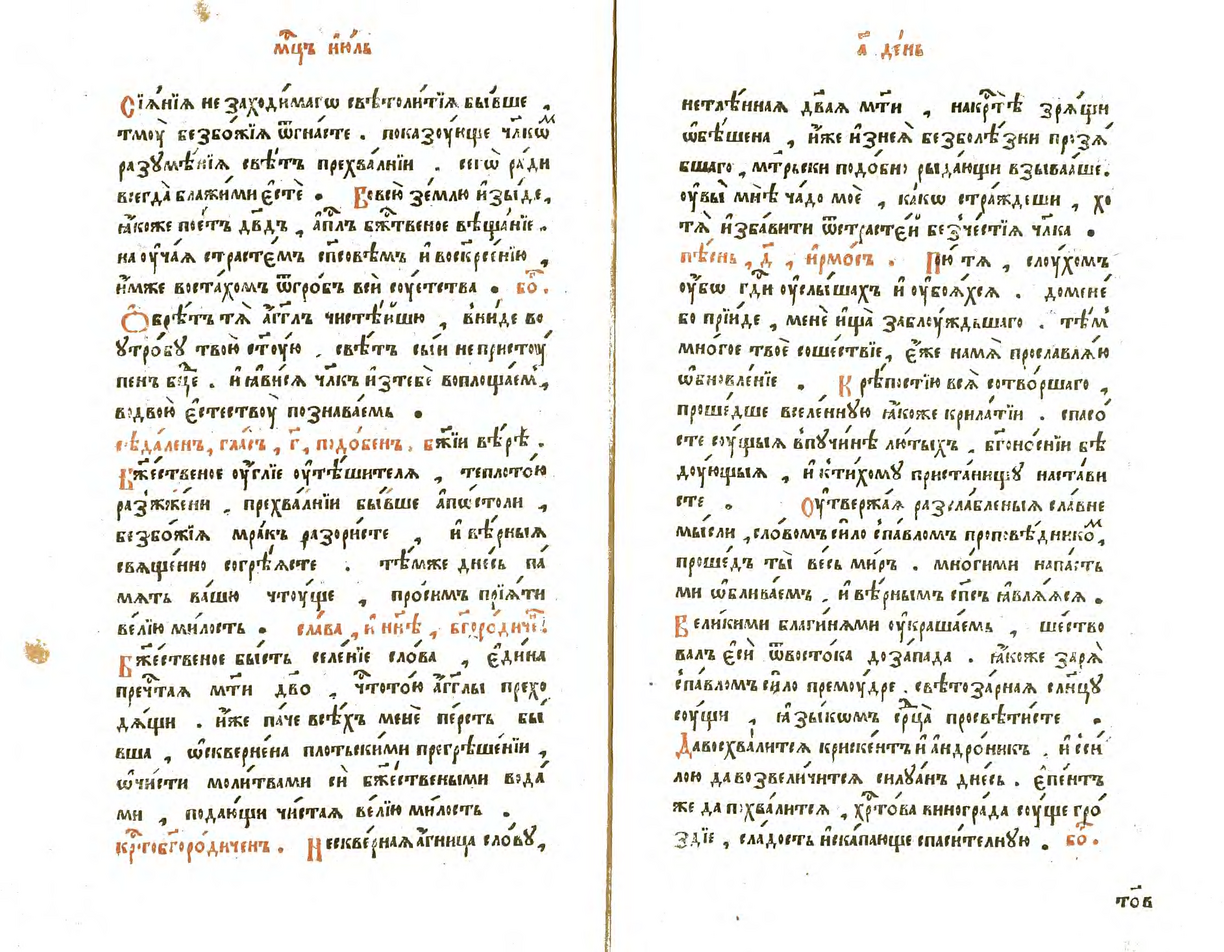 мⷭ҇цъ ию́ль
Сїѧ́нїѧ не заходи́магѡ свѣтоли́тїѧ бы́вше ,
тмоу̀ безбо́жїѧ ѿгна́сте . показоу́юще чл҃кѡⷨ
разꙋмѣ́нїѧ свѣ́тъ прехва́лнїи . сегѡ̀ ра́ди
всегда̀ блажи́ми є҆стѐ . Вовсю̀ зе́млю и҆зы́де ,
ꙗ҆́коже пое́тъ дв҃дъ , а҆пⷭ҇лъ бж҃твеное вѣща́нїе .
на оу҆ча́ѧ страсте́мъ сп҃совѣмъ и҆ воскрⷭ҇нїю ,
и҆́мже воста́хомъ ѿгро́бъ всѝ соу́етства . бо҃ .
Ѻ҆брѣ́тъ тѧ̀ а҆́гг҃лъ чистѣ́йшю , вни́де во
ᲂутро́бꙋ твою̀ ст҃оую , свѣ́тъ сы́и непристоу
пенъ бц҃е . и҆ ꙗ҆ви́сѧ чл҃къ и҆зтебѐ воплоща́емь ,
вᲂдвою̀ є҆стествоу̀ познава́емь .
сѣда́ленъ , гла́съ , г҃ , подо́бенъ , бж҃їи вѣ́рѣ .
Бж҃е́ственое оу҆́глїе оу҆тѣ́шителѧ , теплото́ю
разжже́ни , прехва́лнїи бы́вше а҆пⷭ҇толи ,
безбо́жїѧ мра́къ разори́сте , и҆ вѣ́рныѧ
свѧще́нно согрѣ́ѧсте . тѣ́мже дне́сь па́
мѧть ва́шю чтоу́ще , про́симъ прїѧ́ти
ве́лїю ми́лость . сла́ва , и҆ нн҃ѣ , бг҃оро́диче҃ .
Бж҃е́ственое бы́сть селе́нїе сло́ва , є҆ди́на
пречⷭ҇таѧ мт҃и дв҃о , чⷭ҇тото́ю а҆́гг҃лы прехо
дѧ́щи . и҆́же па́че всѣ́хъ менѐ пе́рсть бы́
вша , ѡ҆скверне́на пло́тьскими прегрѣше́нїи ,
ѡ҆чи́сти моли́твами сѝ бж҃е́ствеными вода́
ми , подаю́щи чи́стаѧ ве́лїю ми́лость .
крⷭ҇тобг҃оро́диченъ . Нескве́рнаѧ а҆́гница сло́вꙋ ,
а҃ де́нь
нетлѣ́ннаѧ дв҃аѧ мт҃и , накрⷭ҇тѣ̀ зрѧ́щи
ѡ҆бѣ́шена , и҆́же и҆знеѧ̀ безболѣ́зни прозѧ́
бшаго , мт҃рьски подо́бно рыда́ющи взыва́аше .
оу҆вы̀ мнѣ̀ ча́до моѐ , ка́кѡ стра́ждеши , хо
тѧ̀ и҆зба́вити ѿстрасте́й безче́стїѧ чл҃ка .
пѣ́снь , д҃ , і҆рмо́съ . Пою̀ тѧ , слоу́хомъ
оу҆́бѡ гдⷭ҇и оу҆слы́шахъ и҆ оу҆боѧ́хсѧ . доменѐ
бо прїи́де , менѐ и҆ща̀ заблоу́ждьшаго . тѣ́м
мно́гое твоѐ соше́ствїе , є҆́же намѧ̀ прославлѧ́ю
ѡ҆бновле́нїе . Крѣ́постїю всѧ̀ сотво́ршаго ,
проше́дше вселе́ннꙋю ꙗ҆́коже крила́тїи . спасо́
сте соу́щыѧ впꙋчи́нѣ лю́тыхъ , бг҃оно́снїи бѣ
доу́ющыѧ , и҆ ктихомꙋ̀ приста́нищꙋ наста́ви
сте . Оу҆твержа́ѧ разсла́бленыѧ сла́вне
мы́сли , сло́вомъ си́ло с̾па́вломъ проповѣ́дникоⷨ ,
проше́дъ ты̀ ве́сь ми́ръ . мно́гими напа́сть
ми ѡ҆блива́емъ , и҆ вѣ́рнымъ сп҃съ ꙗ҆влѧ́ѧсѧ .
Вели́кими благинѧ́ми оу҆краша́емь , ше́ство
валъ є҆сѝ ѿвосто́ка доза́пада . ꙗ҆́коже зарѧ̀
с̾па́вломъ си́ло премоу́дре . свѣтоза́рнаѧ сл҃нцꙋ
соу́щи , ꙗ҆зы́кѡмъ срⷣца̀ просвѣти́сте .
Давосхва́литсѧ криске́нтъ и҆ а҆ндро́никъ , и҆ сси
ло́ю да возвели́читсѧ силꙋа́нъ дне́сь . є҆пе́нтъ
же да пᲂхва́литсѧ , хрⷭ҇то́ва виногра́да соу́ще гро́
здїе , сла́дость и҆ска́пающе спаси́телнꙋю . бо҃ .
то́в